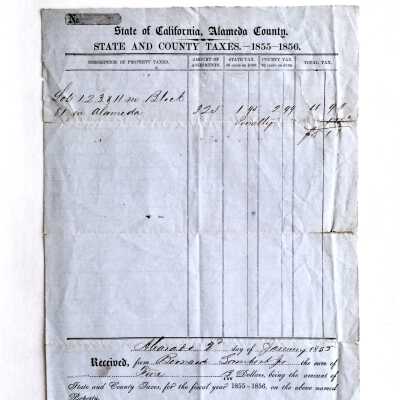 No.
State of California, Alameda County.
STATE AND COUNTY TAXES.—1855–1856.
DESCRIPTION OF PROPERTY TAXED. AMOUNT OF ASSESSMENTS. STATE TAX. COUNTY TAX. TOTAL TAX.
Lots 1 2 3 & 11 in Block
81 in Alameda 325 1 95 2 99 4 94
Penalty
Alvarado day of January 1855
Received, from Bernard the sum of
Five Dollars, being the amount of
State and County Taxes, for the fiscal year 1855–1856, on the above named
Property.